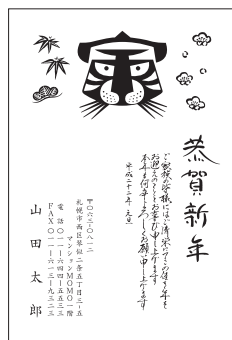 恭賀新年
ご家族の皆様にはご清栄にてこの佳き年を
お迎えのこととお喜び申し上げます
本年も何卒よろしくお願い申し上げます
平成二十二年 元旦
〒〇六三-〇八一二
札幌市西区琴似二条五丁目三-五
マンションMOMO一階
電話〇一一-六四四-五五三三
FAX〇一一-六一三-九三二三
山田太郎